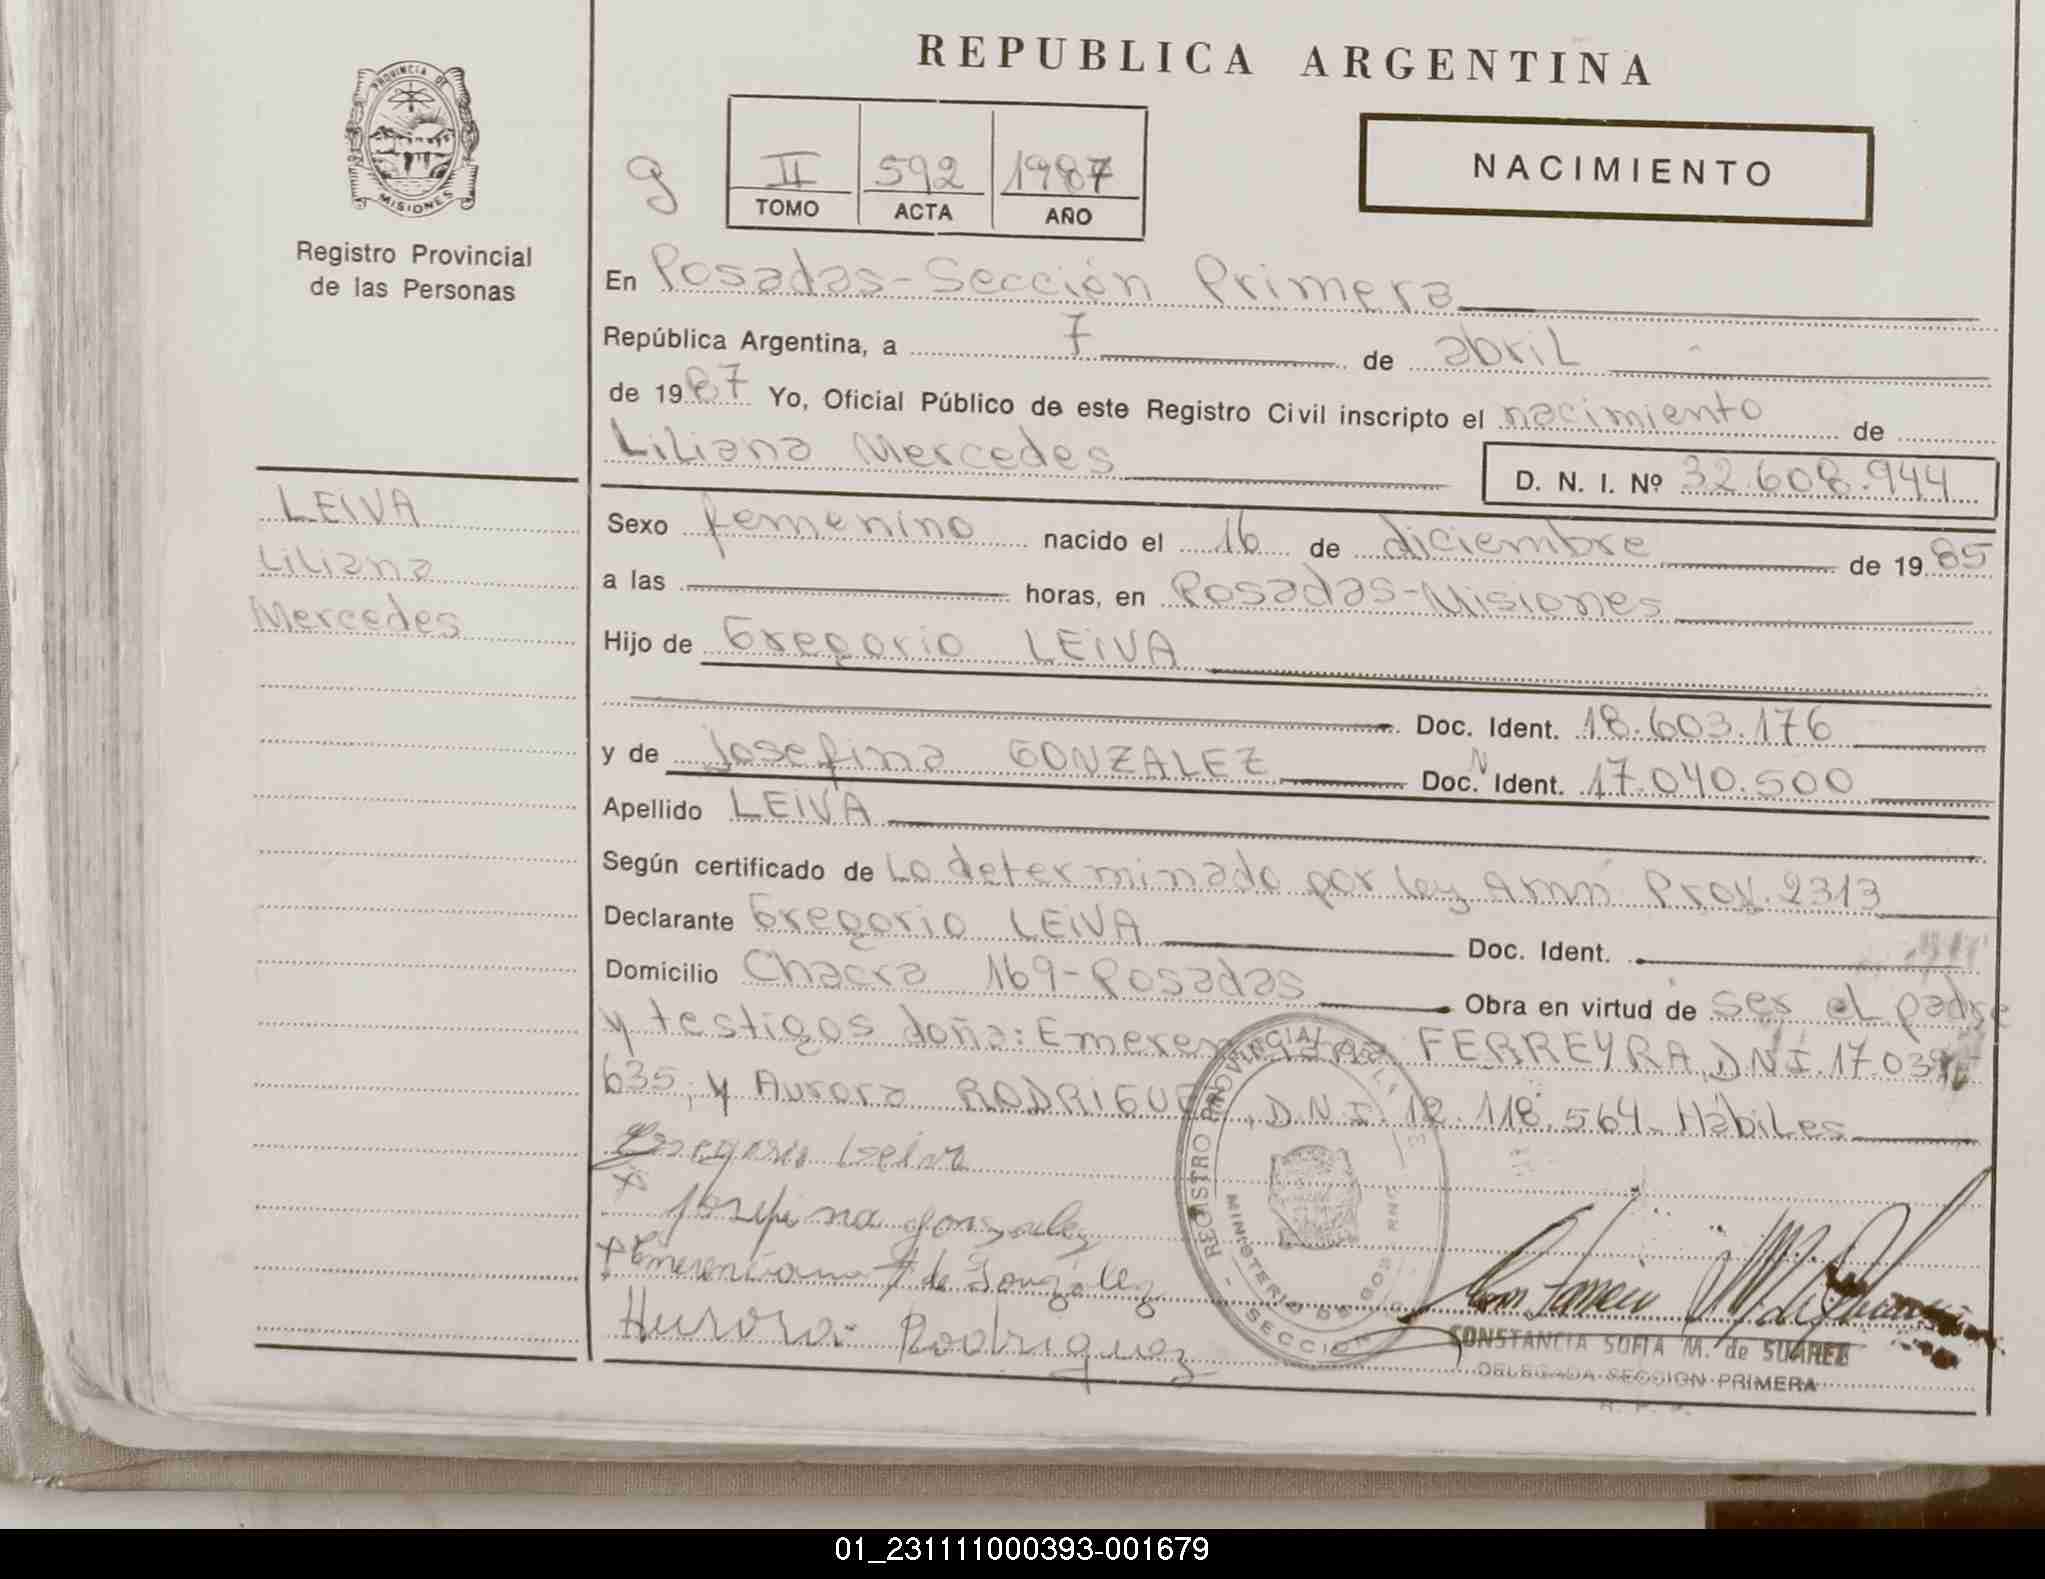 REPUBLICA ARGENTINA
PROVINCIA DE
MISIONES
Registro Provincial
de las Personas
NACIMIENTO
g
II 592 1987
TOMO ACTA AÑO
En Posadas-Sección Primera
República Argentina, a 7 de abril
de 1987 Yo, Oficial Público de este Registro Civil inscripto el nacimiento de
Liliana Mercedes D. N. I. Nº 32.608.944
LEIVA
Liliana
Mercedes
Sexo femenino nacido el 16 de diciembre de 1985
a las horas, en Posadas-Misiones
Hijo de Gregorio LEIVA
Doc. Ident. 18.603.176
y de Josefina GONZALEZ Doc. N Ident. 17.040.500
Apellido LEIVA
Según certificado de Lo determinado por ley Amn Prov. 2313
Declarante Gregorio LEIVA Doc. Ident.
Domicilio Chacra 169-Posadas Obra en virtud de ser el padre
y testigos doña: FERREYRA, D.N.I. 17.039.
635, y Aurora RODRIGUEZ, D.N.I. 12.118.564. Hábiles
Gregorio Leiva
x Josefina gonzalez
x Emerenciana F de Gonzalez
Aurora Rodriguez
REGISTRO PROVINCIAL
MINISTERIO DE GOB
SECCION
CONSTANCIA SOFIA M. de SUAREZ
DELEGADA SECCION PRIMERA
R. P. P.
01_231111000393-001679